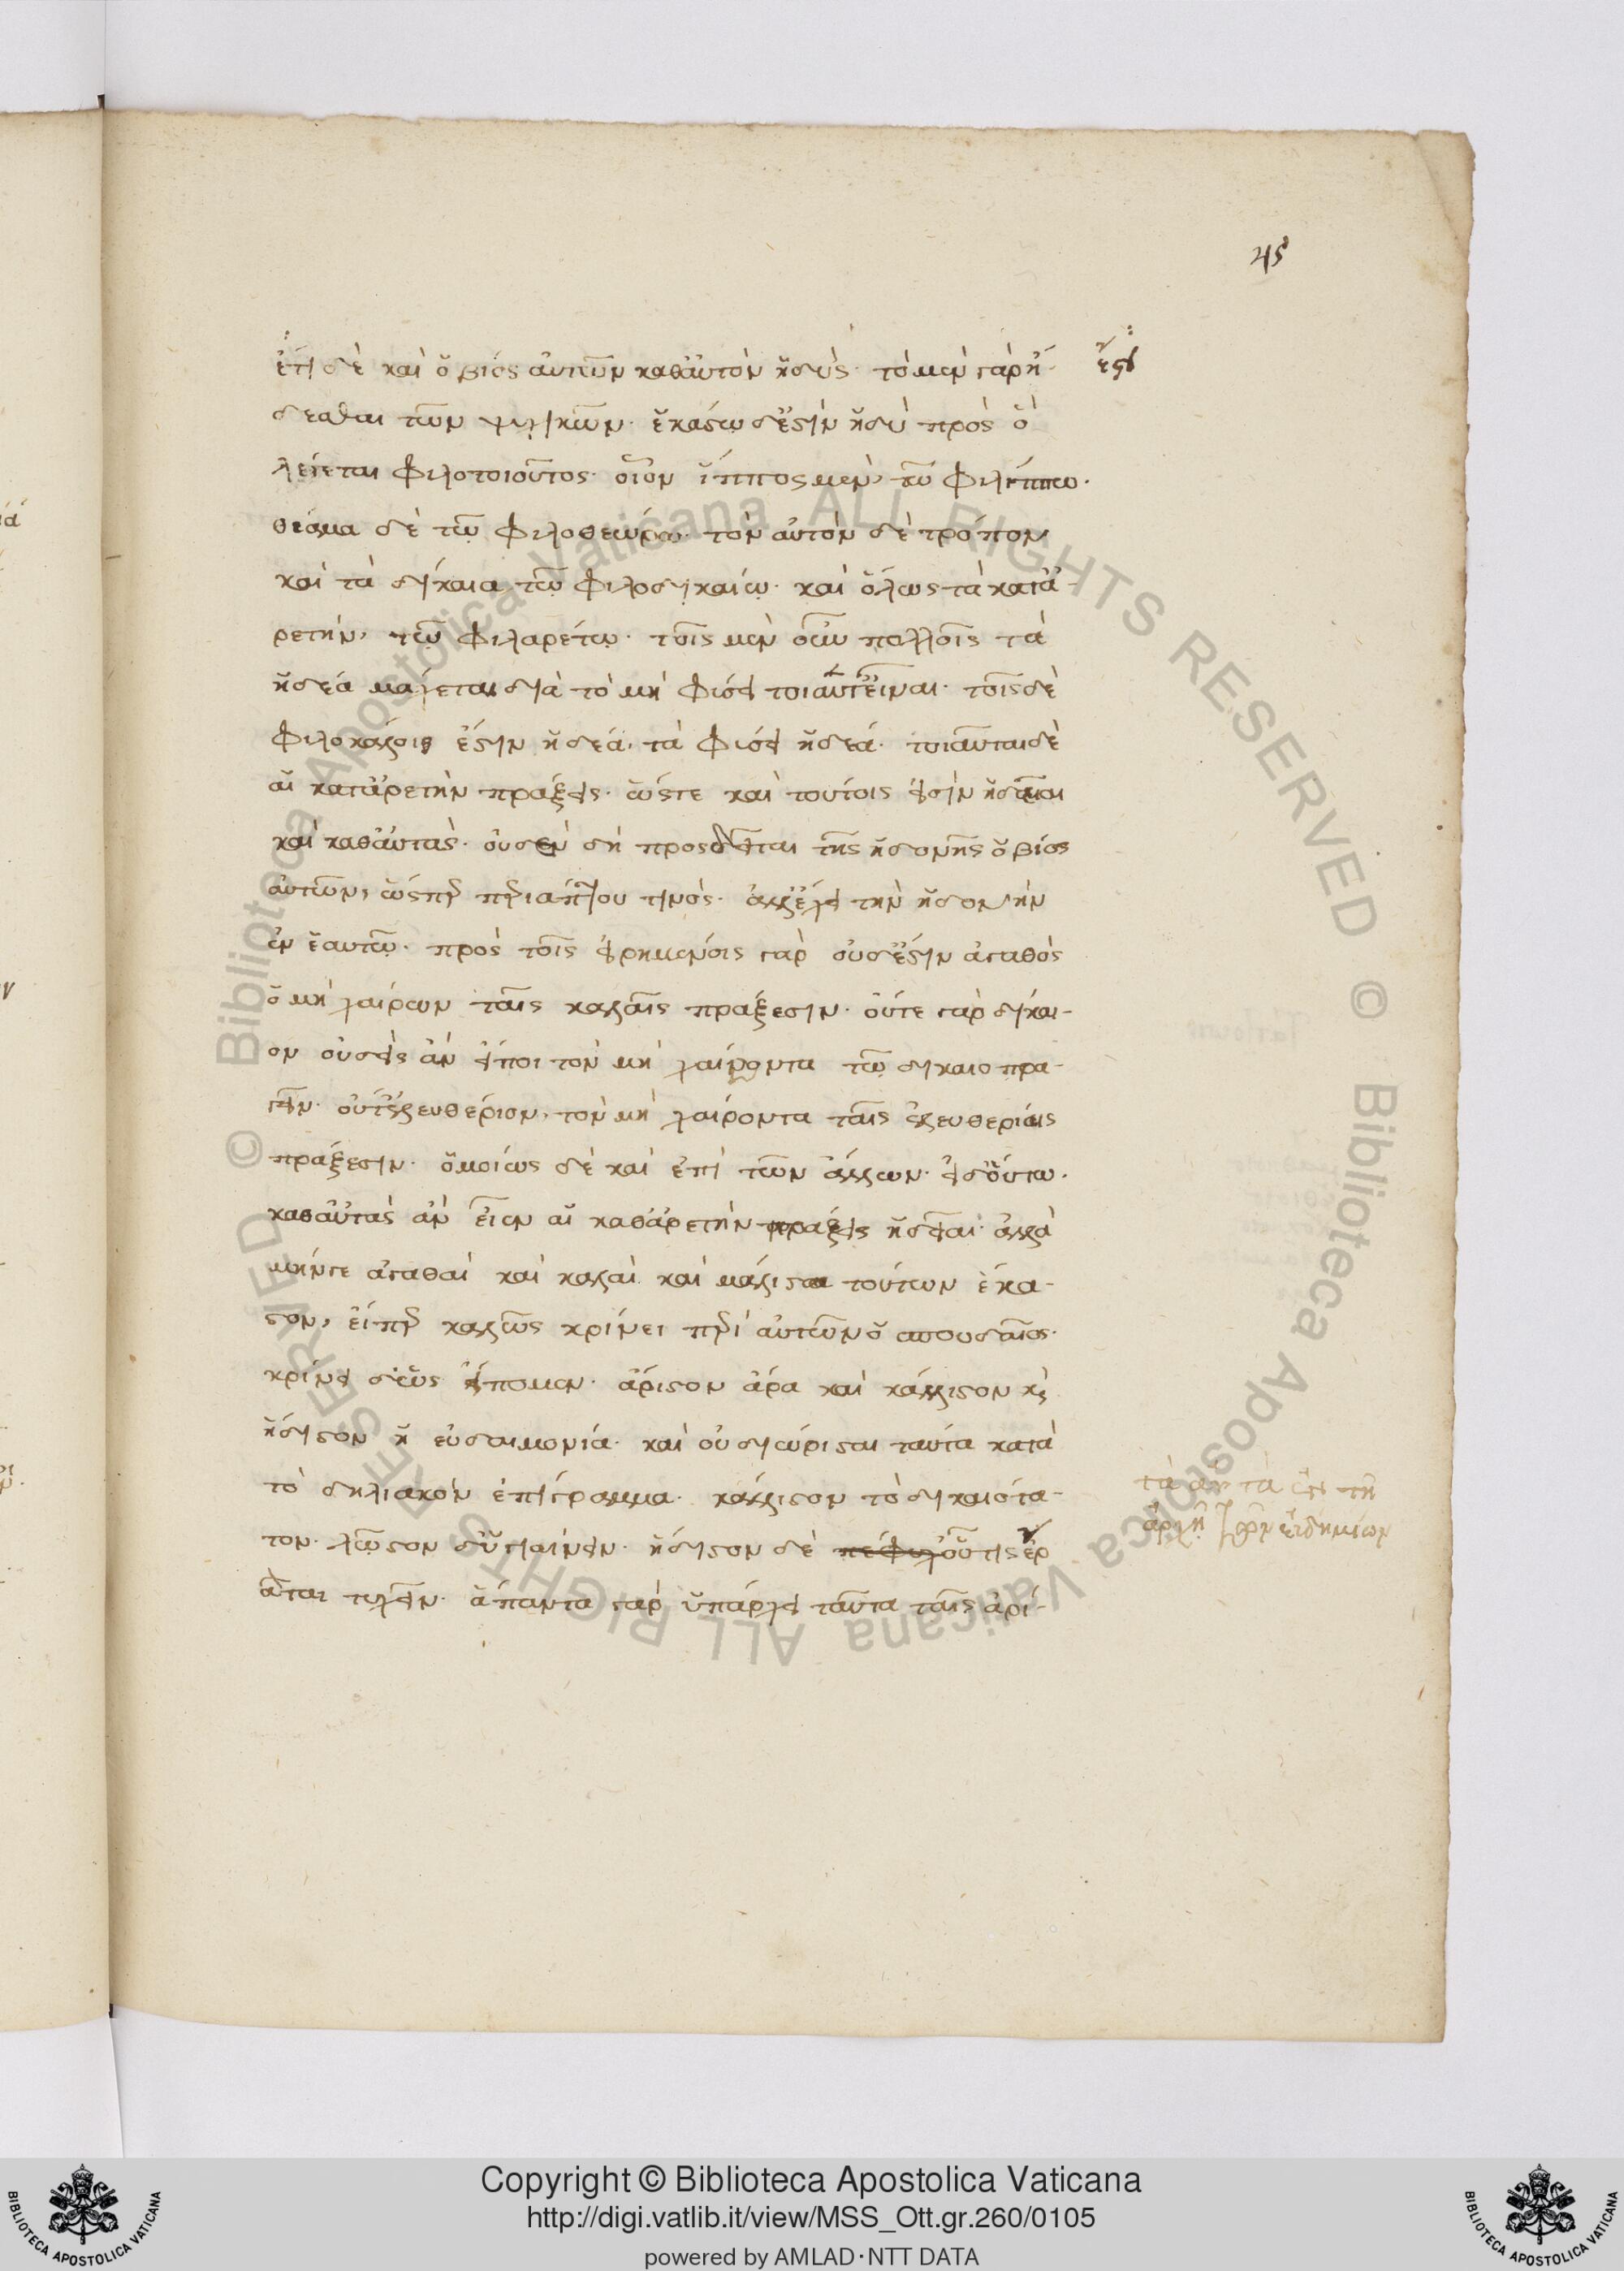 45
ἔτι δὲ καὶ ὁ βίος αὐτῶν καθαὐτὸν ἡδύς· τὸ μὲν γὰρ ἥ-
δεσθαι τῶν ψυχικῶν· ἑκάστω δἐστὶν ἡδὺ πρὸς ὃ
λέγεται φιλοτοιοῦτος· οἷον ἵππος μὲν, τῶ φιλίππω·
θέαμα δὲ τῶ φιλοθεώρω· τὸν αὐτὸν δὲ τρόπον
καὶ τὰ δίκαια τῶ φιλοδικαίω· καὶ ὅλως τὰ κατἀ-
ρετὴν, τῶ φιλαρέτω· τοῖς μὲν οὖν πολλοῖς τὰ
ἡδέα μάχεται διὰ τὸ μὴ φύσει τοιαῦτ εἶναι· τοῖς δὲ
φιλοκάλοις ἐστὶν ἡδέα, τὰ φύσει ἡδέα· τοιαῦται δὲ
αἱ κατἀρετὴν πράξεις· ὥστε καὶ τούτοις εἰσὶν ἡδεῖαι
καὶ καθαὑτάς· οὐδὲν δὴ προσδεῖται τῆς ἡδονῆς ὁ βίος
αὐτῶν, ὥσπερ περιάπτου τινός· ἀλλἔχει τὴν ἡδονὴν
ἐν ἑαυτῶ· πρὸς τοῖς εἰρημένοις γὰρ οὐδἐστὶν ἀγαθὸς
ὁ μὴ χαίρων ταῖς καλαῖς πράξεσιν· οὔτε γὰρ δίκαι-
ον οὐδεὶς ἂν εἴποι τὸν μὴ χαίροντα τῶ δικαιοπρα-
γεῖν· οὔτἐλευθέριον, τὸν μὴ χαίροντα ταῖς ἐλευθερίαις
πράξεσιν· ὁμοίως δὲ καὶ ἐπὶ τῶν ἄλλων· εἰδοὕτω·
καθαὑτὰς ἂν εἶεν αἱ καθἀρετὴν πράξεις ἡδεῖαι· ἀλλὰ
μήν γε ἀγαθαὶ καὶ καλαὶ καὶ μάλιστα τούτων ἕκα-
στον, εἴπερ καλῶς κρίνει περὶ αὐτῶν ὁ σπουδαῖος·
κρίνει δὡς εἴπομεν· ἄριστον ἄρα καὶ κάλλιστον κ
ἥδιστον ἡ εὐδαιμονία· καὶ οὐ διώρισται ταῦτα κατὰ
τὸ δηλιακὸν ἐπίγραμμα· κάλλιστον τὸ δικαιότα-
τον· λῶστον δὑγιαίνειν· ἥδιστον δὲ πέφυχ οὗ τις ἐρ
ᾶται τυχεῖν· ἅπαντα γὰρ ὑπάρχει ταῦτα ταῖς ἀρί-
τὰ αὐτὰ ἐν τῆ
ἀρχῆ τῶν εὐδημίων
Copyright © Biblioteca Apostolica Vaticana
http://digi.vatlib.it/view/MSS_Ott.gr.260/0105
powered by AMLAD·NTT DATA
BIBLIOTECA APOSTOLICA VATICANA
BIBLIOTECA APOSTOLICA VATICANA
© Biblioteca Apostolica Vaticana ALL RIGHTS RESERVED © Biblioteca Apostolica Vaticana ALL RIGHTS RESERVED